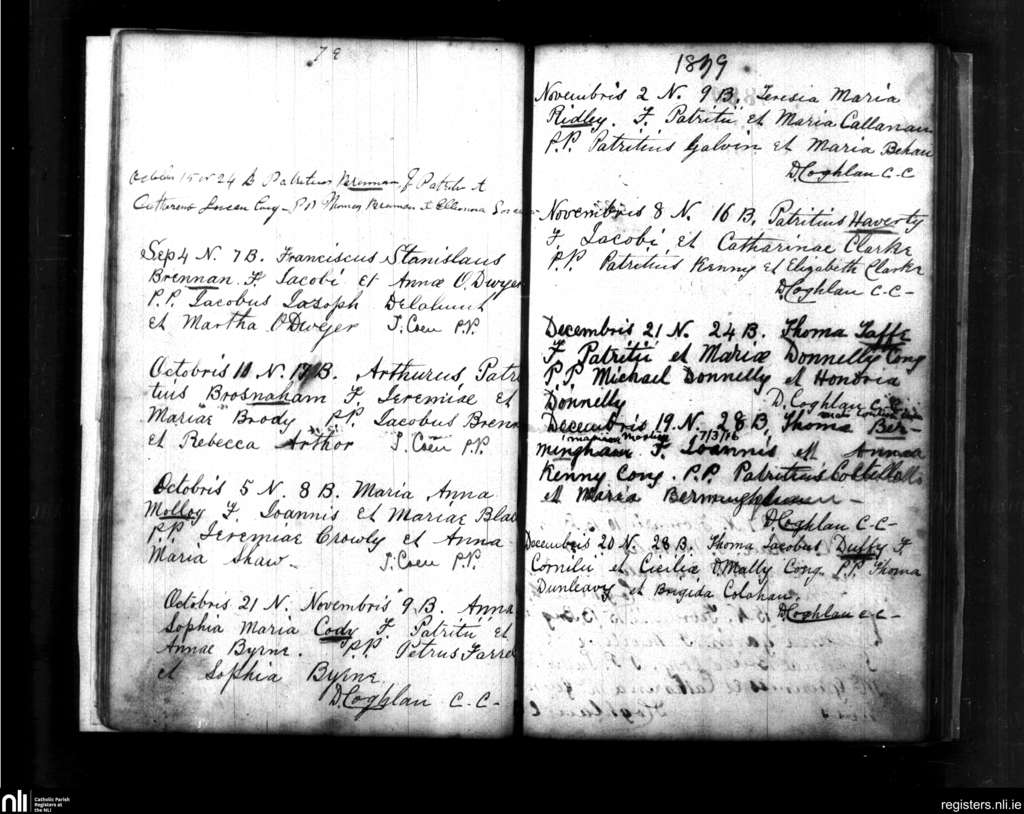 79
Octobris 15 N 24 B Patritius Brennan F Patritii et
Catherinae Cong P.P Thomas Brennan et Elleonora
Sep 4 N. 7 B. Franciscus Stanislaus
Brennan. F. Iacobi et Annae O'Dwyer
P.P. Iacobus Iasoph Delahunt
et Martha O'Dwyer J. Coen P.P.
Octobris 10 N. 17 B. Arthurus, Patri
tius Brosnaham F. Jeremiae et
Mariae Brody P.P. Iacobus Brenn
et Rebecca Arthor J. Coen P.P.
Octobris 5 N. 8 B. Maria Anna
Molloy F. Ioannis et Mariae Bla
P.P. Jeremiae Crowly et Anna
Maria Shaw - J. Coen P.P.
Octobris 21 N. Novembris 9 B. Anna
Sophia Maria Cody F. Patritii et
Annae Byrne. P.P. Petrus Farre
et Sophia Byrne.
D. Coghlan C.C-
1879
Novembris 2 N. 9 B. Teresia Maria
Ridley. F. Patritii et Maria Callanan
P.P. Patritius Galvin et Maria Behan
D. Coghlan C.C
Novembris 8 N. 16 B. Patritius Haverty
F. Iacobi et Catharinae Clarke
P.P. Patritius Kenny et Elizabeth Clarke
D. Coghlan C.C-
Decembris 21 N. 24 B. Thoma Taffe
F. Patritii et Mariae Donnelly Cong
P.P. Michael Donnelly et Honoria
Donnelly D. Coghlan C.C
Decembris 19 N. 28 B. Thoma Ber-
7/3/16
mingham F. Ioannis et Annae
Kenny Cong. P.P. Patritius Costello
et Maria Bermingham -
D. Coghlan C.C-
Decembris 20 N. 28 B. Thoma Iacobus Duffy F.
Cornilii et Ciciliae O'Mally Cong. P.P. Thoma
Dunleavy et Brigida Colahan.
D. Coghlan C.C-
nli
Catholic Parish
Registers at
the NLI
registers.nli.ie